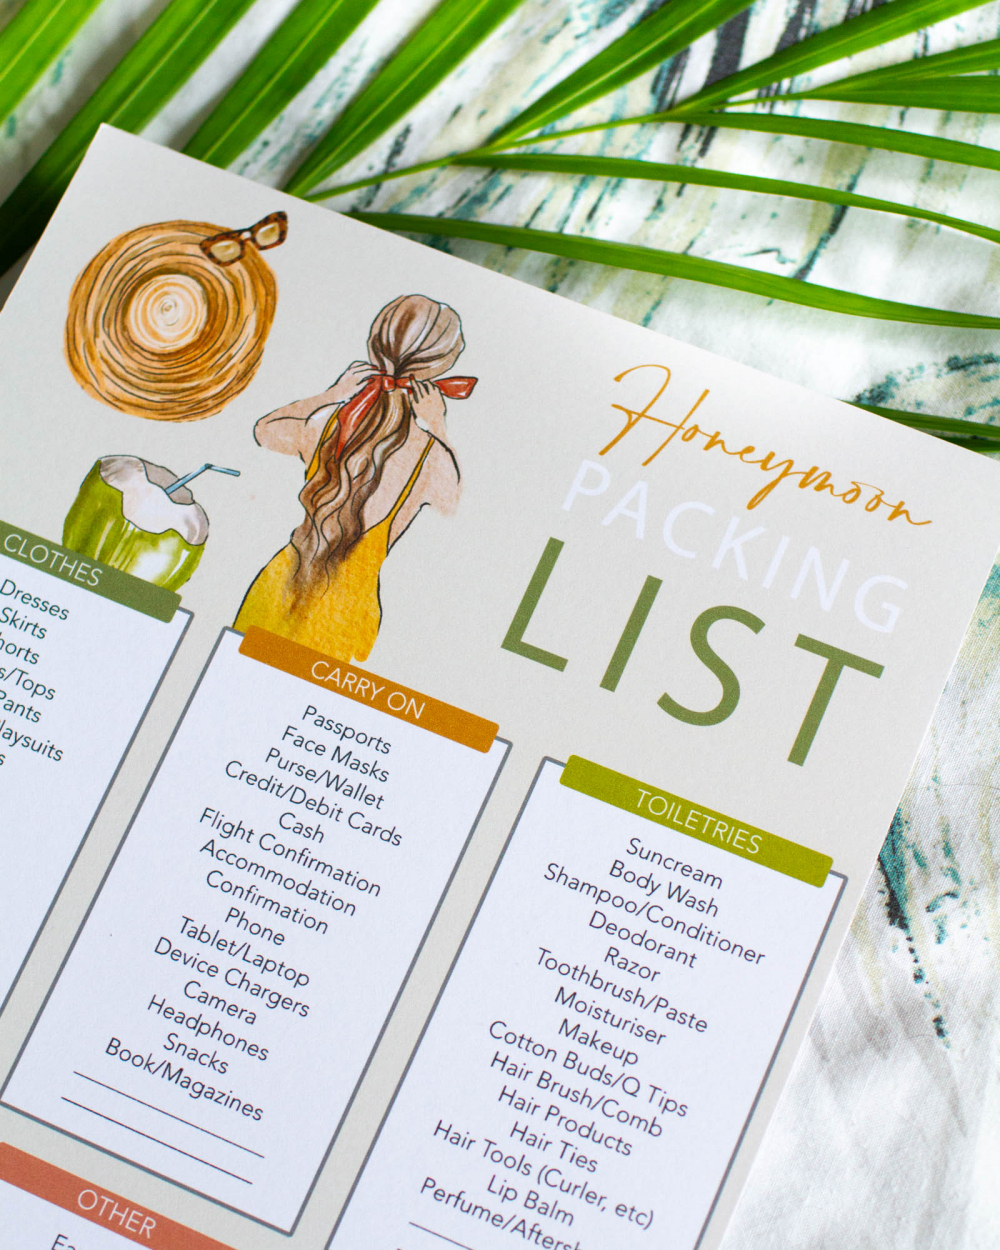 Honeymoon
PACKING
LIST
CLOTHES
Dresses
Skirts
/Tops
Pants
CARRY ON
Passports
Face Masks
Purse/Wallet
Credit/Debit Cards
Cash
Flight Confirmation
Accommodation
Confirmation
Phone
Tablet/Laptop
Device Chargers
Camera
Headphones
Snacks
Book/Magazines
TOILETRIES
Suncream
Body Wash
Shampoo/Conditioner
Deodorant
Razor
Toothbrush/Paste
Moisturiser
Makeup
Cotton Buds/Q Tips
Hair Brush/Comb
Hair Products
Hair Ties
Hair Tools (Curler, etc)
Lip Balm
Perfume/
OTHER